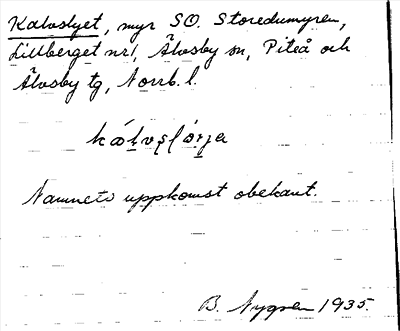 Kalvslyet, myr SO. Storedumyren,
Lillberget nr 1, Älvsby sn, Piteå och
Älvsby tg, Norrb. l.
Namnets uppkomst obekant.
B. Nygren 1935.